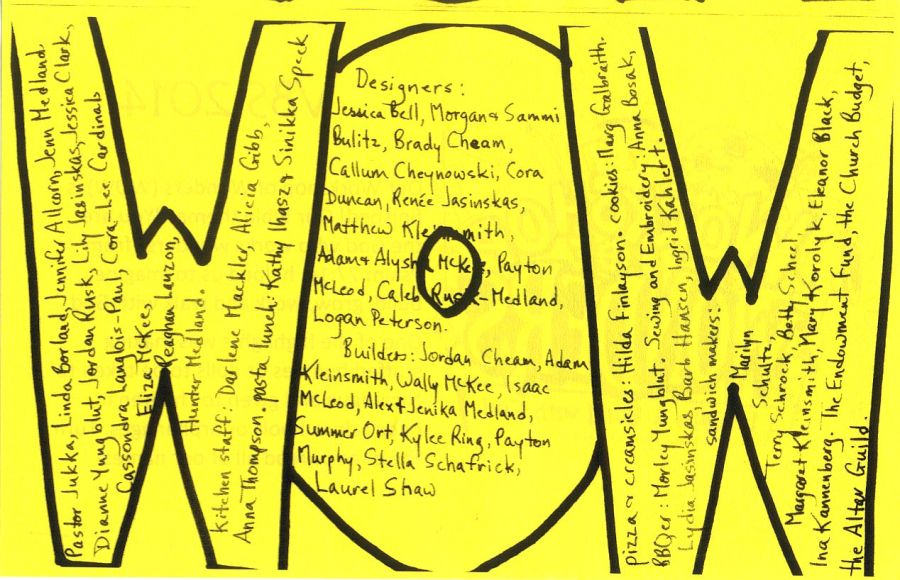 Pastor Jukka, Linda Borland, Jennifer Allcorn, Jenn Medland.
Dianne Yungblut, Jordan Rusk, Lily Jasinskas, Jessica Clark,
Cassondra Langlois-Paul, Cora-Lee Cardinals
Eliza McKee,
Reaghan Lauzon,
Hunter Medland.
Kitchen staff: Darlene Mackler, Alicia Gibb,
Anna Thompson. pasta lunch: Kathy Ihasz & Sinikka Speck
Designers:
Jessica Bell, Morgan & Sammi
Bulitz, Brady Cheam,
Callum Cheynowski, Cora
Duncan, Renée Jasinskas,
Matthew Kleinsmith,
Adam & Alysha McKee, Payton
McLeod, Caleb Rusk-Medland,
Logan Peterson.
Builders: Jordan Cheam, Adam
Kleinsmith, Wally McKee, Isaac
McLeod, Alex & Jenika Medland,
Summer Ort, Kylee Ring, Payton
Murphy, Stella Schafrick,
Laurel Shaw
pizza & creamsicles: Hilda Finlayson. cookies: Marg Galbraith.
BBQer: Morley Yungblut. Sewing and Embroidery: Anna Bosak,
Lydia Jasinskas, Barb Hansen, Ingrid Kahlert.
sandwich makers:
Marilyn
Schultz,
Terry Schrock, Betty Scheel,
Margaret Kleinsmith, Mary Korolyk, Eleanor Black,
Ina Kannenberg. The Endowment Fund, the Church Budget,
the Altar Guild.